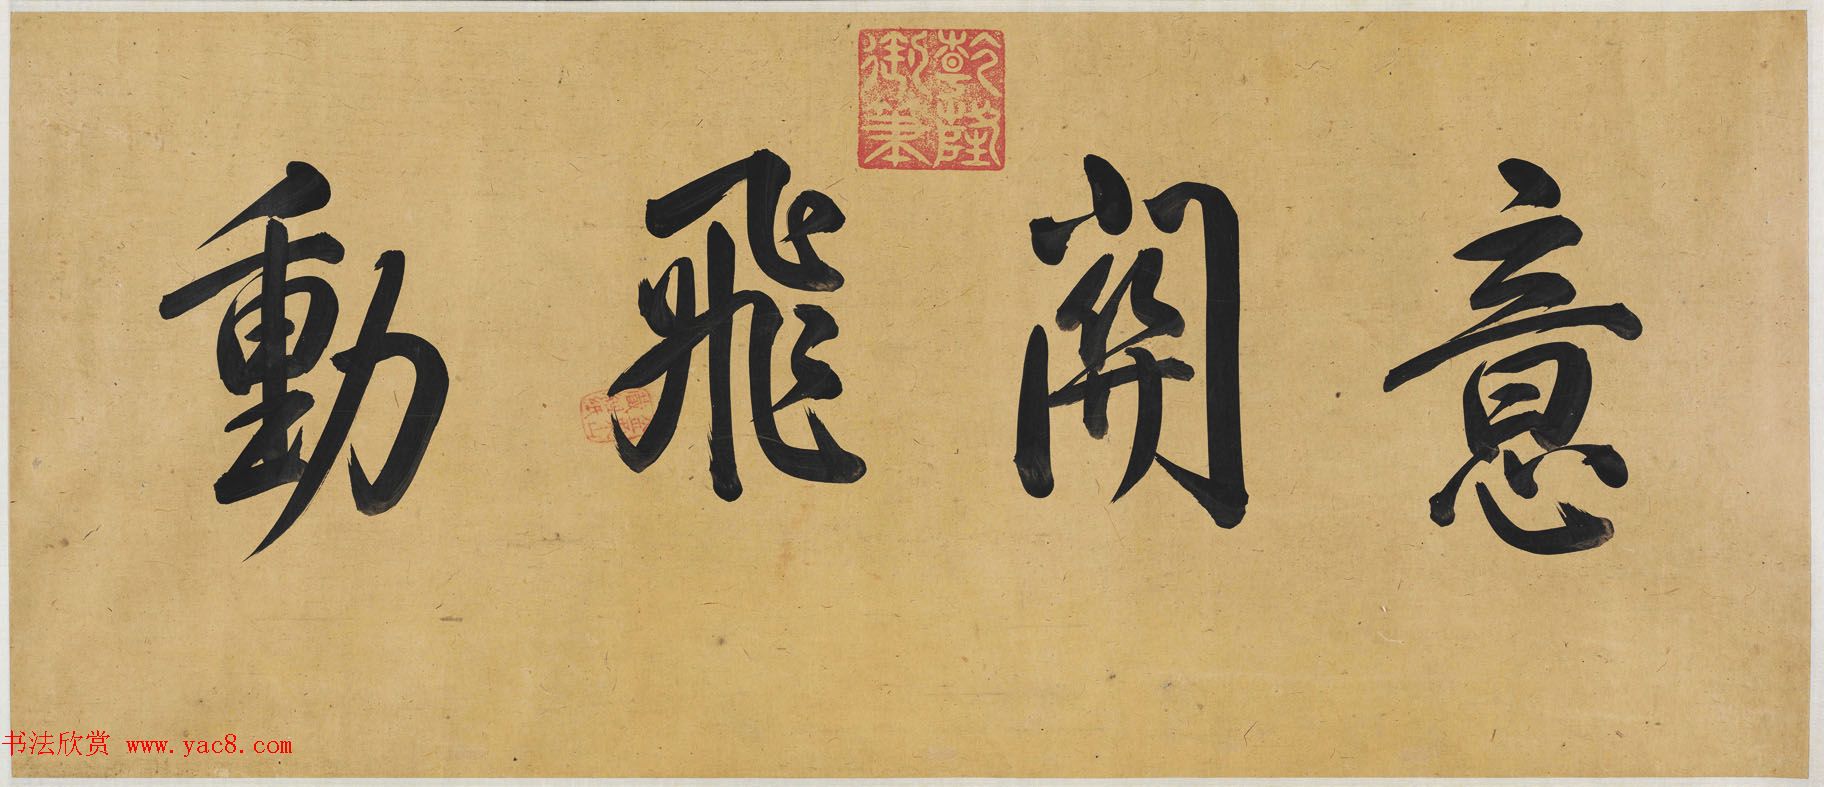 乾隆御筆
意關飛動
书法欣赏 www.yac8.com